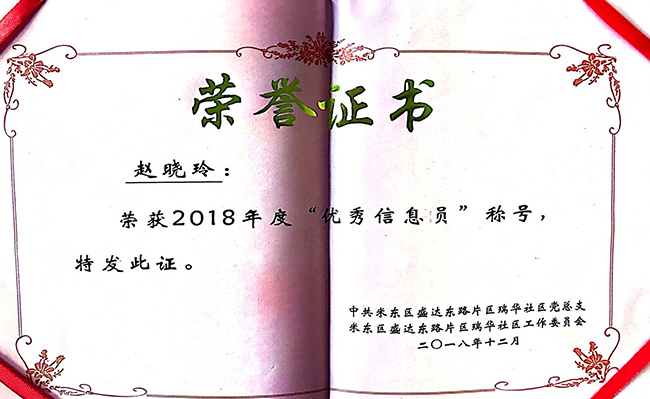 荣誉证书
赵晓玲：
荣获2018年度“优秀信息员”称号，
特发此证。
中共米东区盛达东路片区瑞华社区党总支
米东区盛达东路片区瑞华社区工作委员会
二〇一八年十二月